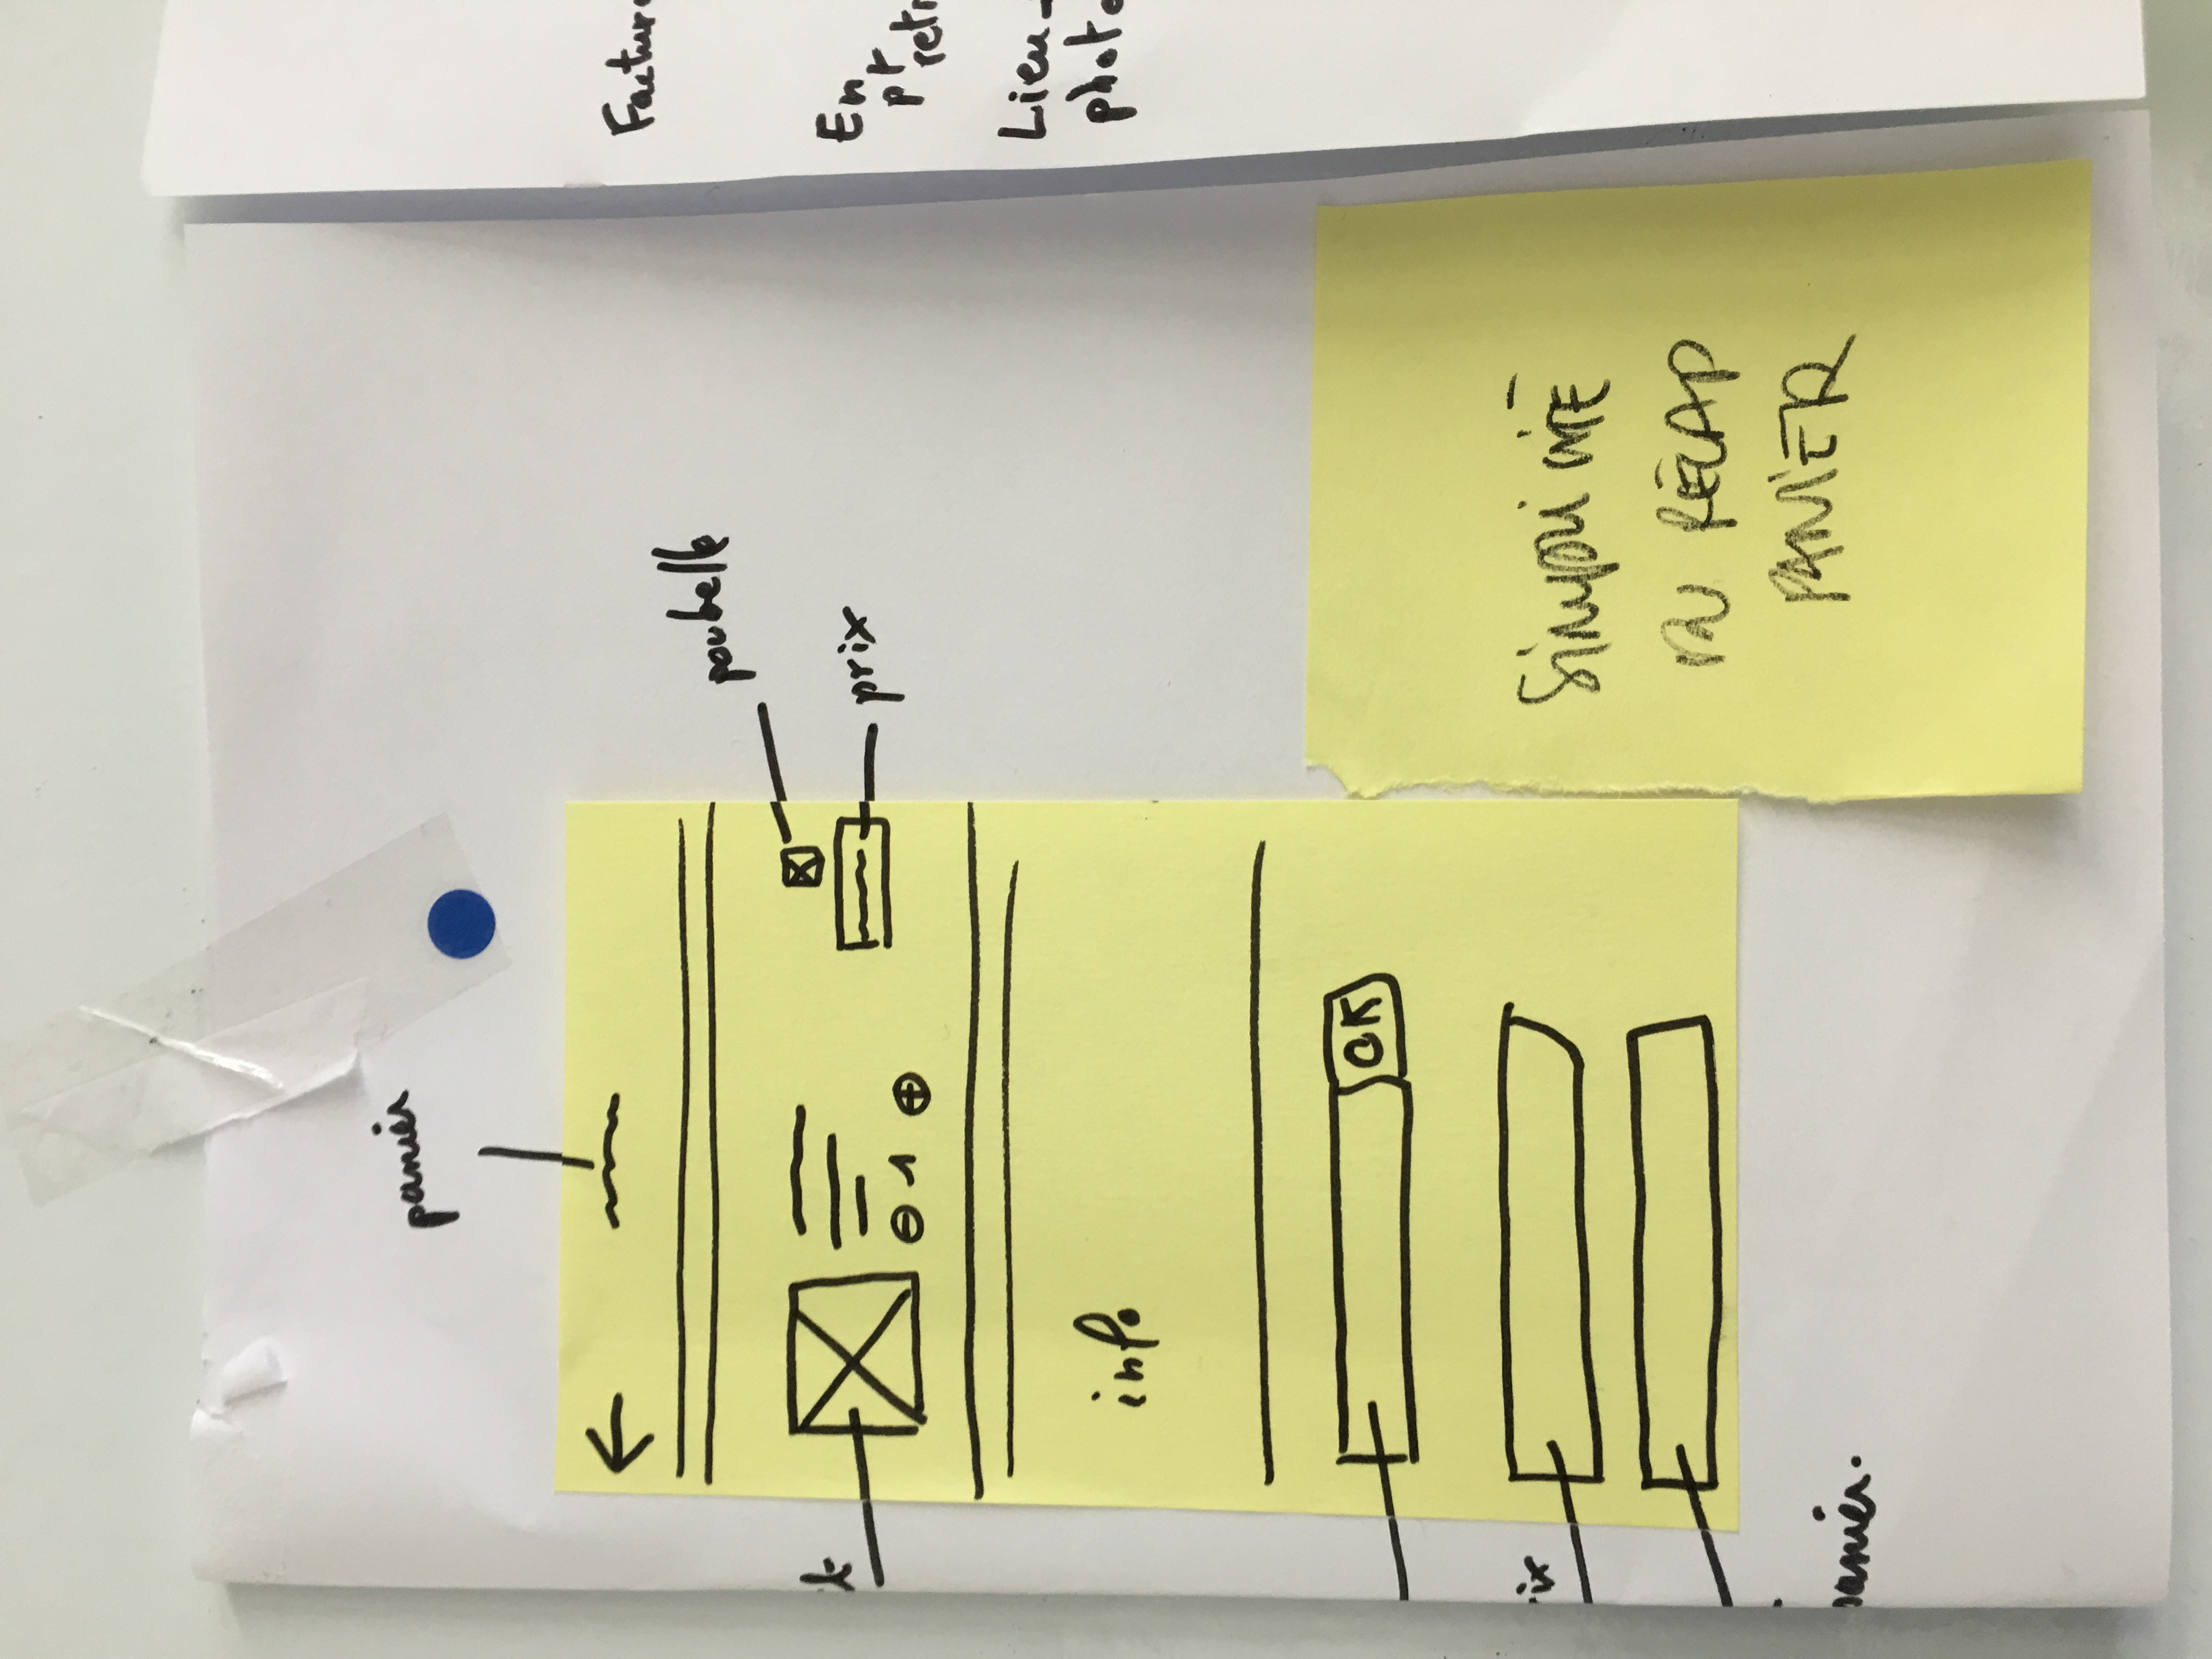 panier
poubelle
prix
1
info
OK
ix
panier.
SIMPLICITÉ
DU RÉCAP
PANIER
Facture
En
pt
retr
Lieu
photo